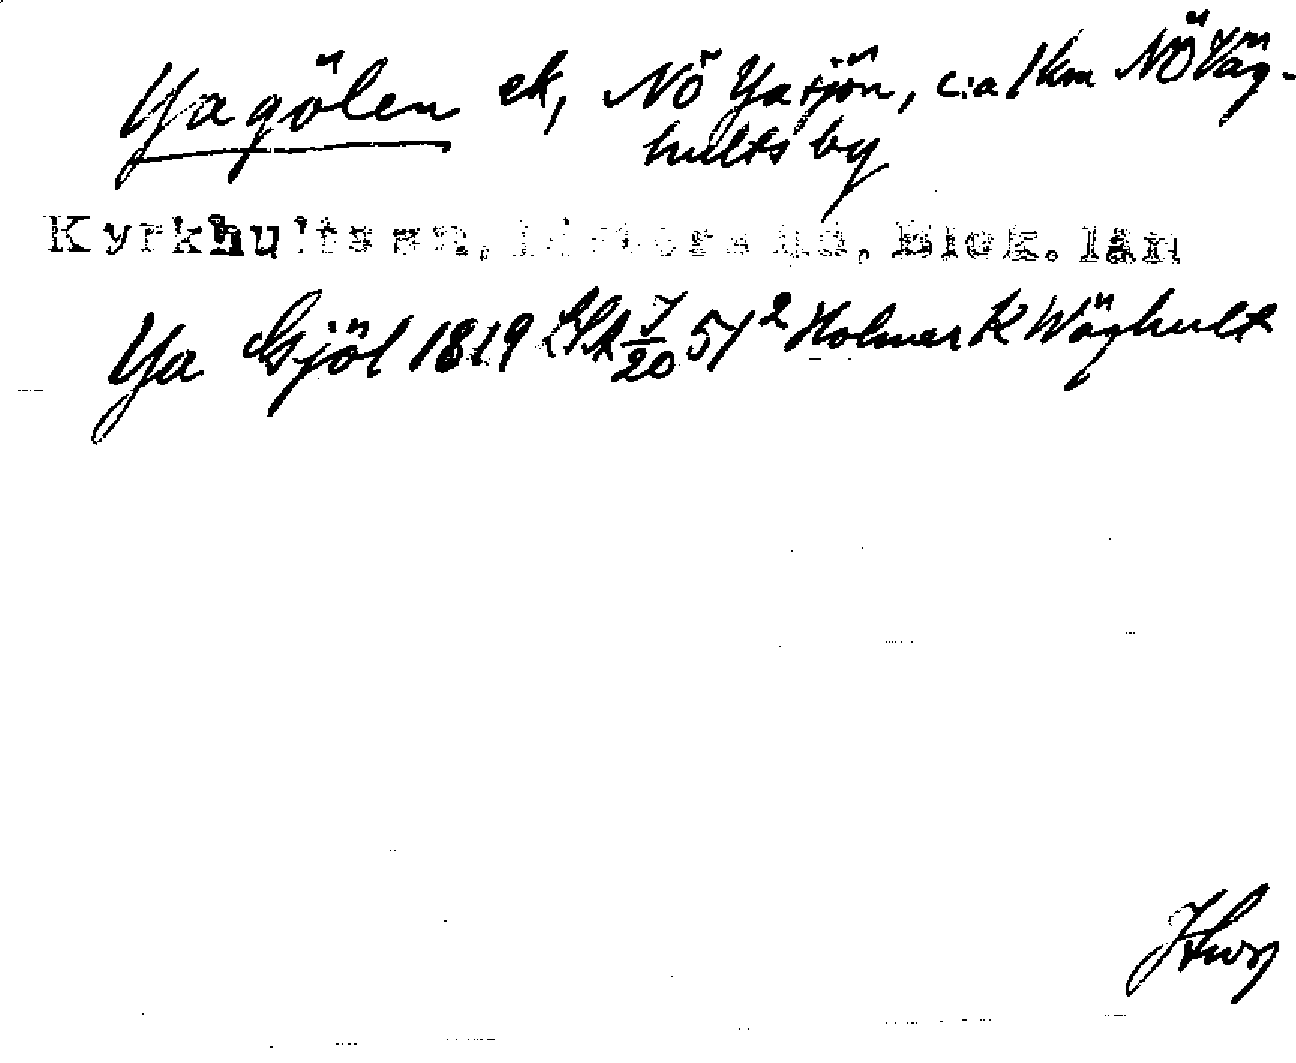 Yagölen ek, NÖ Yasjön, c:a 1 km NÖ Väg-
hults by
Kyrkhults sn, Listers hd, Blek. län
Ya Gjöl 1819 LSA 7/20 51² Holmer K Wäghult